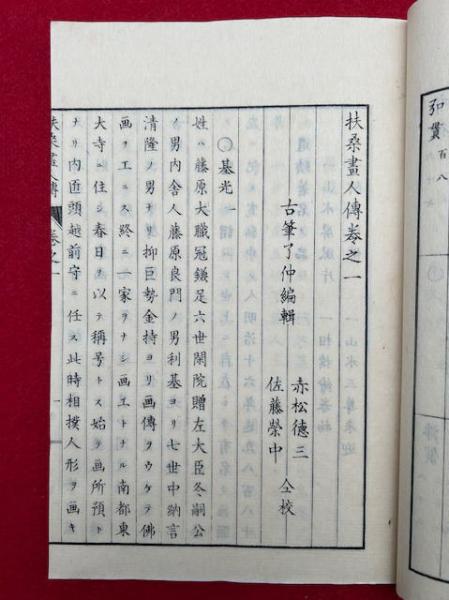 扶桑畫人傳卷之一
古筆了仲編輯
赤松德三
佐藤榮中
仝校
基光
姓ハ藤原大職冠鎌足六世閑院贈左大臣冬嗣公
ノ男内舎人藤原良門ノ男利基ヨリ七世中納言
清隆ノ男ナリ抑巨勢金持ヨリ画傳ヲウケテ佛
画ヲ工ニス終ニ一家ヲナシ画工トナル南都東
大寺ニ住シ春日ヲ以テ稱号トス始テ画所預ト
ナリ内匠頭越前守ニ任ス此時相撲人形ヲ画キ
扶桑畫人傳
卷之一
一
弘貫 百八